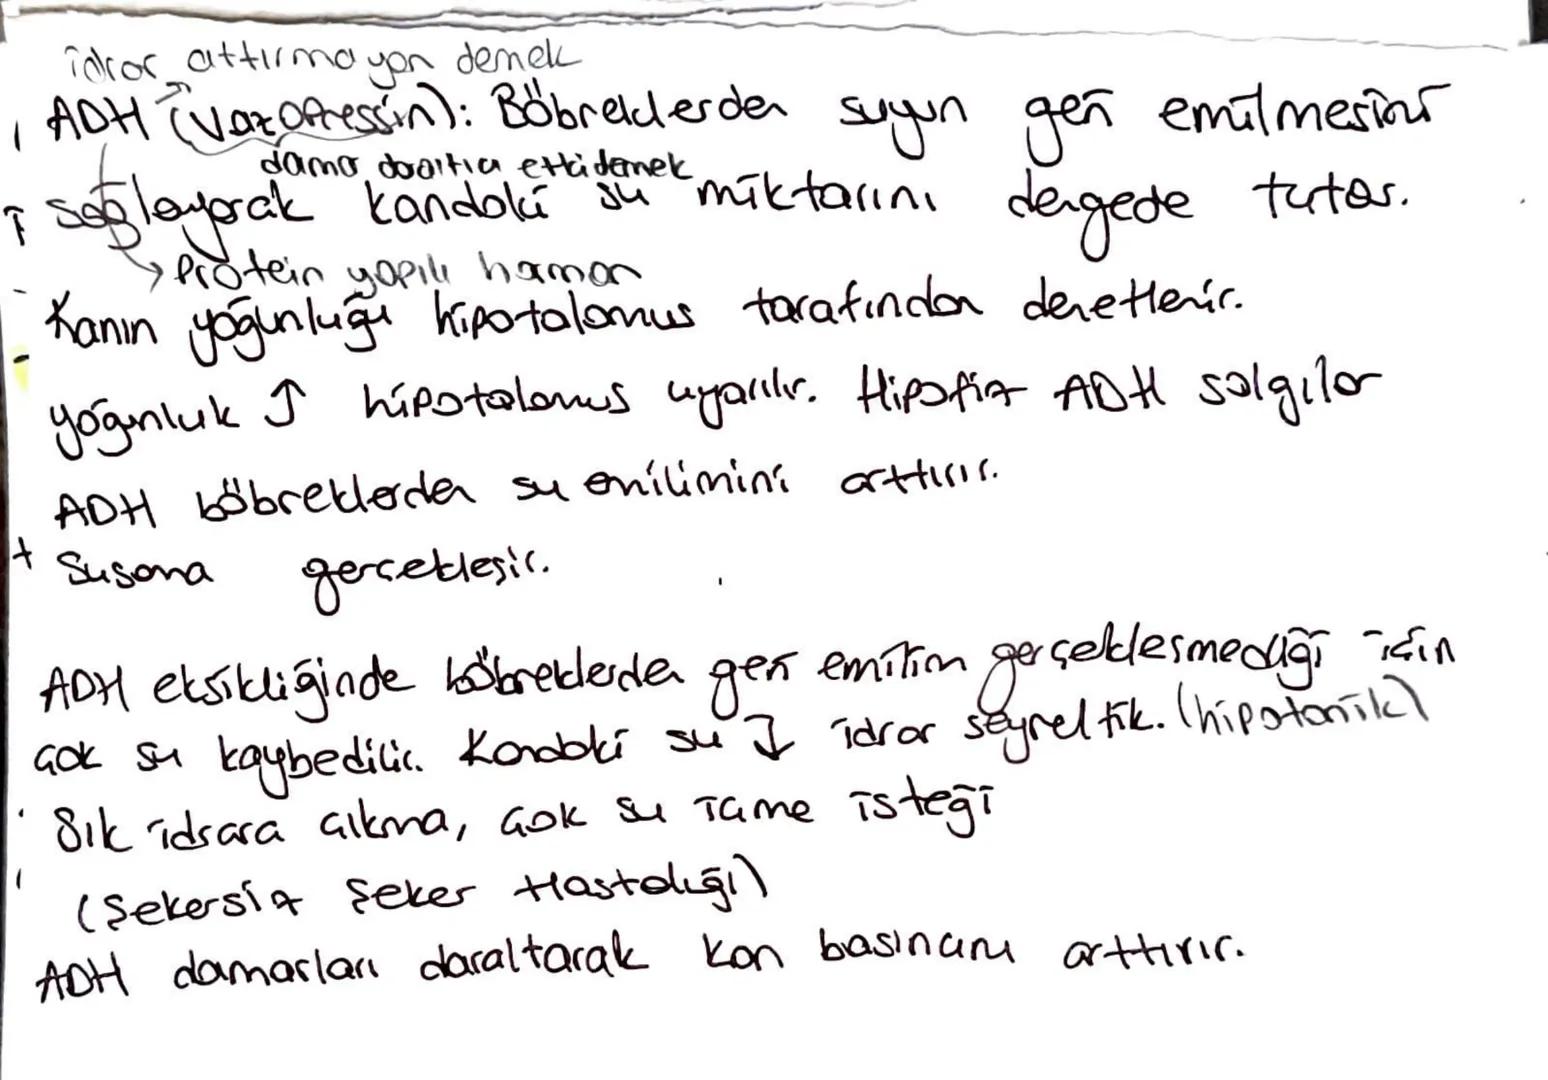 idrar attırmayan demek
ADH (Vazopressin): Böbreklerden suyun geri emilmesini
damar daraltıcı etki demek
sağlayarak kandaki su miktarını dengede tutar.
Protein yapılı hormon
Kanın yoğunluğu hipotalamus tarafından denetlenir.
yoğunluk ↑ hipotalamus uyarılır. Hipofiz ADH salgılar
ADH böbreklerden su emilimini arttırır.
+ Susama gerçekleşir.
ADH eksikliğinde böbreklerden geri emilim gerçekleşmediği için
çok su kaybedilir. Kandaki su ↓ idrar seyreltik. (hipotonik)
Sık idrara çıkma, çok su içme isteği
(Şekersiz Şeker Hastalığı)
ADH damarları daraltarak kan basıncını arttırır.